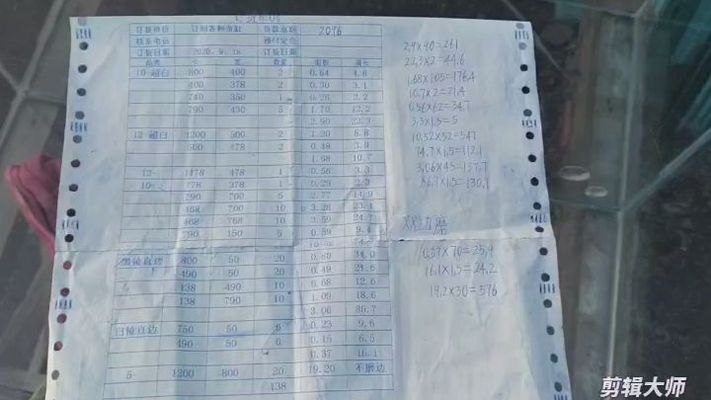 2096
2020.9.18
10-超白 800 400 2 0.64 4.8
400 378 2 0.30 3.1
740 350 1 0.26 2.2
790 430 5 1.70 12.2
2.90 22.3
12-超白 1200 500 2 1.20 6.8
500 478 2 0.48 3.9
1.68 10.7
12- 1178 478 1 0.56 3.3
10- 778 378 1 0.29
790 700 5 2.77 14.9
468 700 10 3.28 23.4
468 768 10 3.59 24.7
790 150 5 0.59 9.4
黑镜直边 800 50 20 0.80 34.0
490 50 20 0.49 21.6
138 490 10 0.68 12.6
138 790 10 1.09 18.6
3.06 86.7
白镜直边 750 50 6 0.23 9.6
490 50 6 0.15 6.5
0.37 16.1
5 1200 800 20 19.20 不磨边
138
2.9×90=261
22.3×2=44.6
1.68×105=176.4
10.7×2=21.4
0.56×62=34.7
3.3×1.5=5
10.52×52=547
74.7×1.5=112.1
3.06×45=137.7
86.7×1.5=130.1
0.37×70=25.9
16.1×1.5=24.2
19.2×30=576
剪辑大师